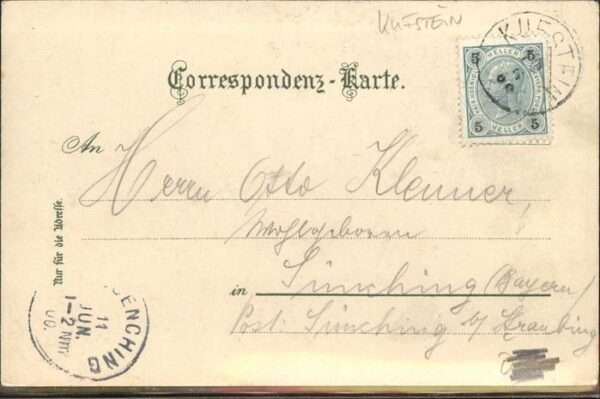 KUFSTEIN
KUFSTEIN
5 5
HELLER
HELLER
5 5
Correspondenz-Karte.
An
Herrn Otto Klenner,
Wohlgeboren
Nur für die Adresse.
in Sünching (Bayern)
Post: Sünching b/ Straubing
SUENCHING
11
JUN.
1-2 NM
00.